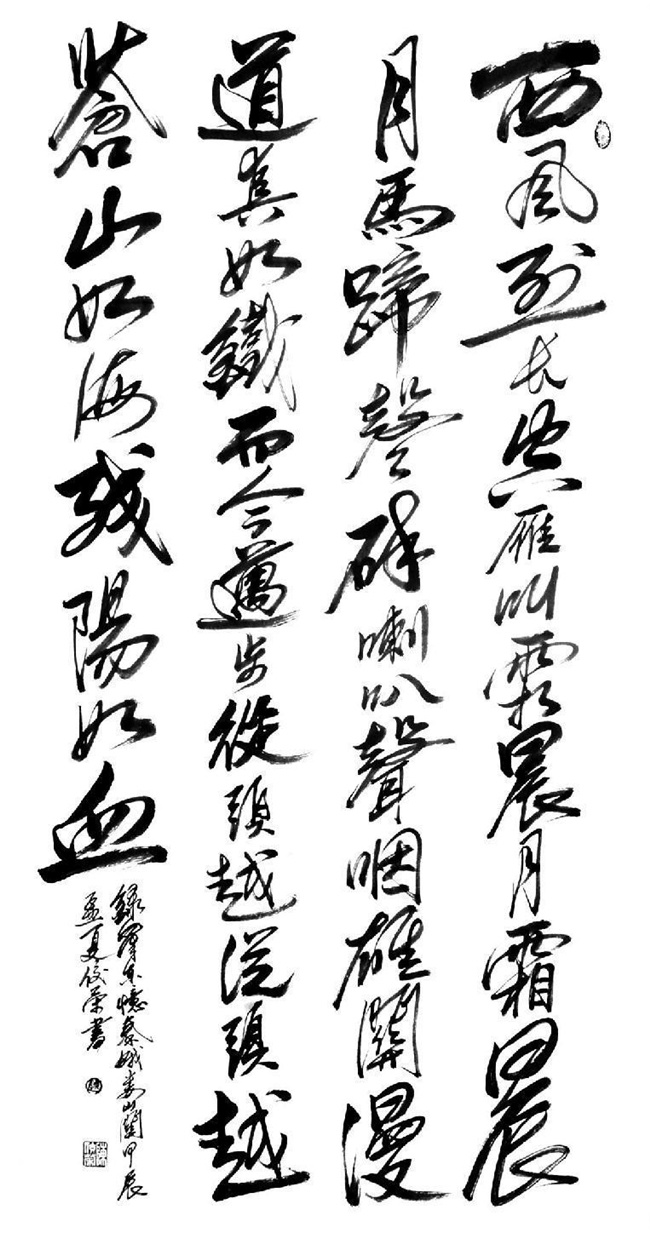 西風烈長空雁叫霜晨月霜晨
月馬蹄聲碎喇叭聲咽雄關漫
道真如鐵而今邁步從頭越從頭越
蒼山如海殘陽如血
錄澤東憶秦娥婁山關甲辰
孟夏書